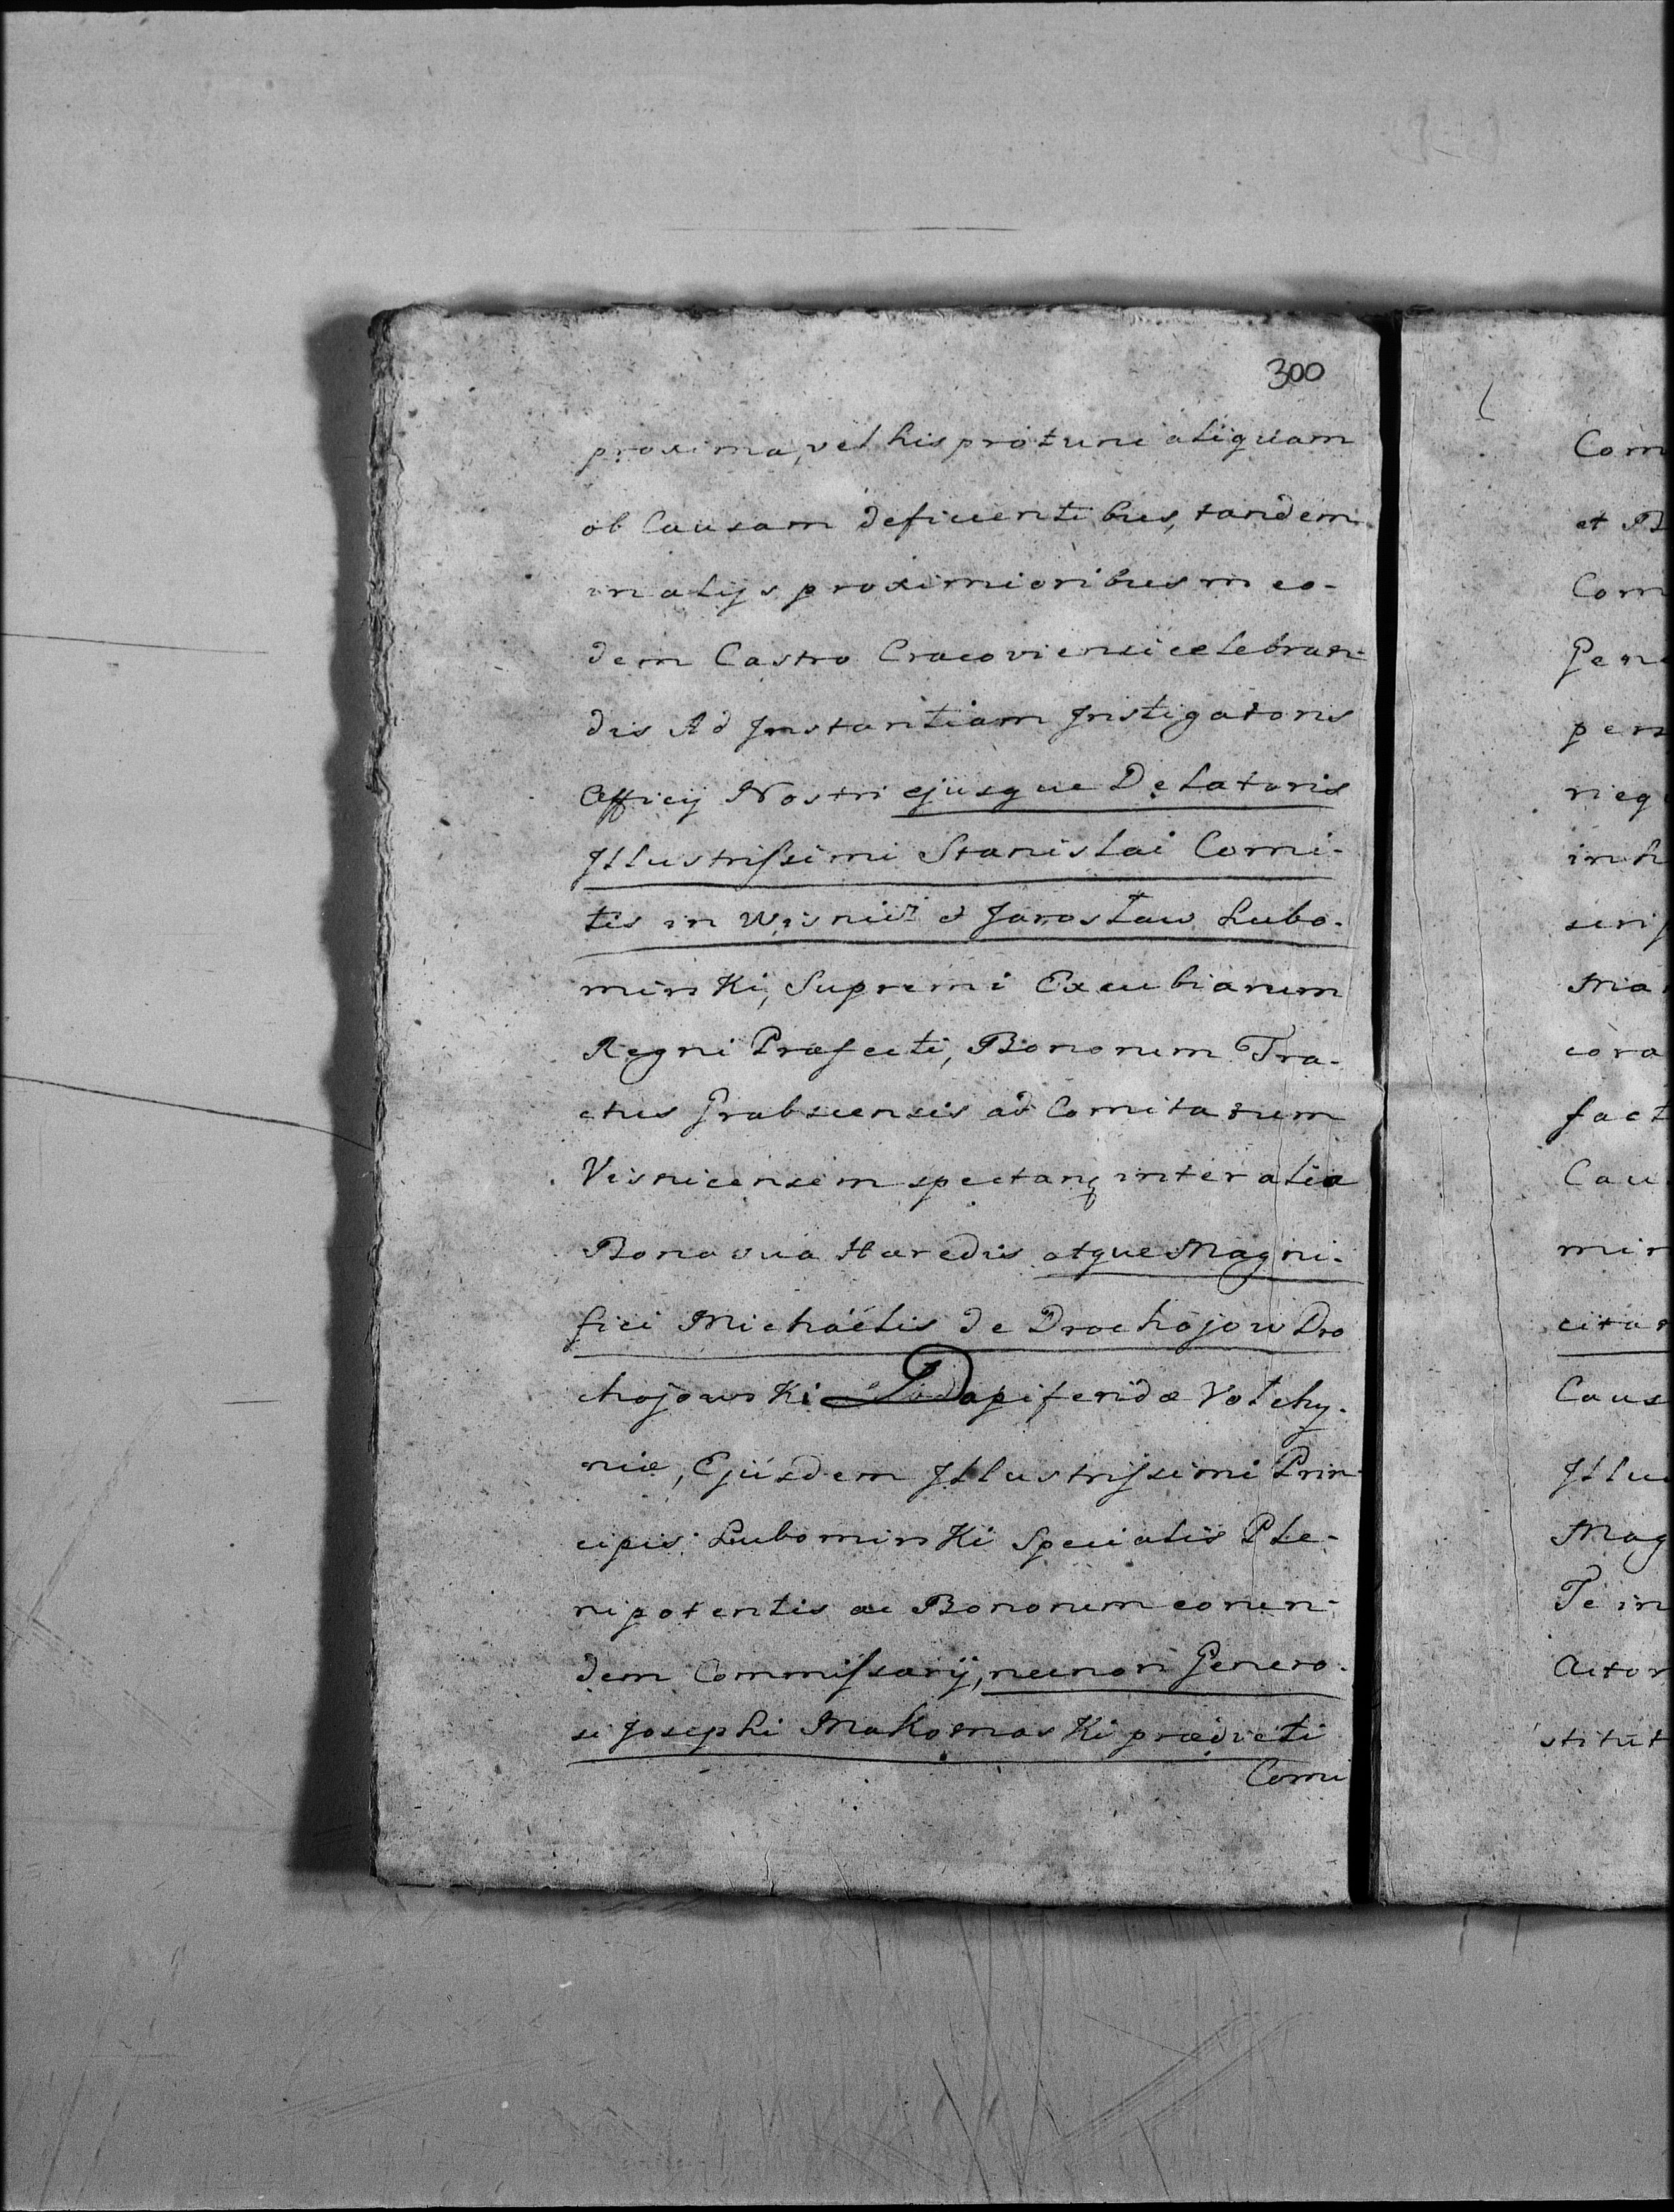 300
proxima, vel his pro tunc aliquam
ob Causam deficientibus, tandem
in alijs proximioribus in eo-
dem Castro Cracoviensi celebran-
dis Ad Jnstantiam Jnstigatoris
Officij Nostri ejusque Delatoris
Jllustrissimi Stanislai Comi-
tis in Wisnicz & Jarosław Lubo-
mirski, Supremi Excubiarum
Regni Præfecti, Bonorum Tra-
ctus Grabsiensis ad Comitatum
Visnicensem spectan inter alia
Bona sua Hæredis atque Magni-
fici Michaëlis de Drochojow Dro
chojowski Dapiferidæ Volhy-
niæ, Ejusdem Jllustrissimi Prin-
cipis Lubomirski Specialis Ple-
nipotentis ac Bonorum eorun-
dem Commissarij, necnon Genero-
si Josephi Makomaski prædicti
Comi
Com
et B
Com
Gen
per
rieq
inh
scrip
Ma
cora
fact
Cau
mir
citar
Caus
Jllu
Mag
Te in
Actor
stitut